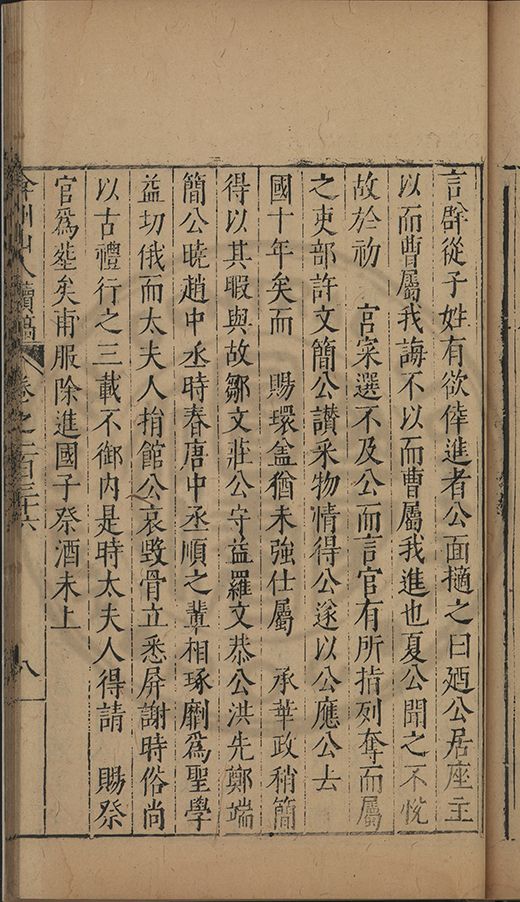 言辟從子姓有欲倖進者公面擿之曰廼公居座主
以而曹屬我誨不以而曹屬我進也夏公聞之不悅
故於初　宮寀選不及公而言官有所指列奪而屬
之吏部許文簡公讚采物情得公遂以公應公去
國十年矣而　賜環盒猶未強仕屬　承華政稍簡
得以其暇與故鄒文莊公守益羅文恭公洪先鄭端
簡公曉趙中丞時春唐中丞順之輩相琢劘爲聖學
益切俄而太夫人捐館公哀毀骨立悉屏謝時俗尚
以古禮行之三載不御內是時太夫人得請　賜祭
官爲塟矣甫服除進國子祭酒未上
弇州山人續稿　卷之一百三十六　八